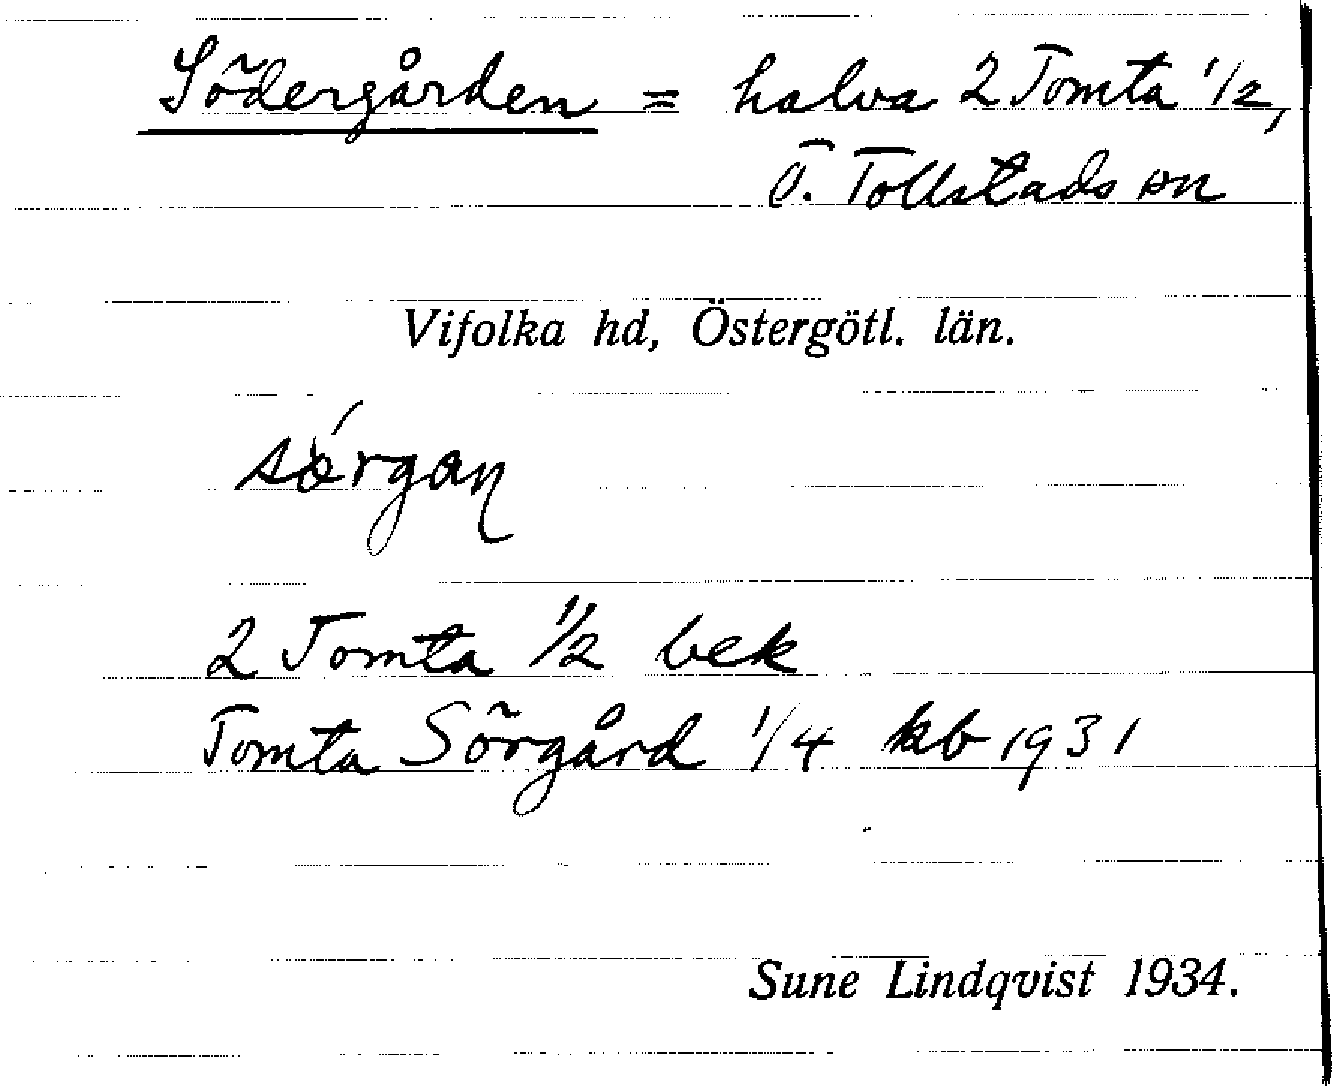 Södergården = halva 2 Tomta 1/2,
Ö. Tollstads sn
Vifolka hd, Östergötl. län.
2 Tomta 1/2 bek
Tomta Sörgård 1/4 kb 1931
Sune Lindqvist 1934.